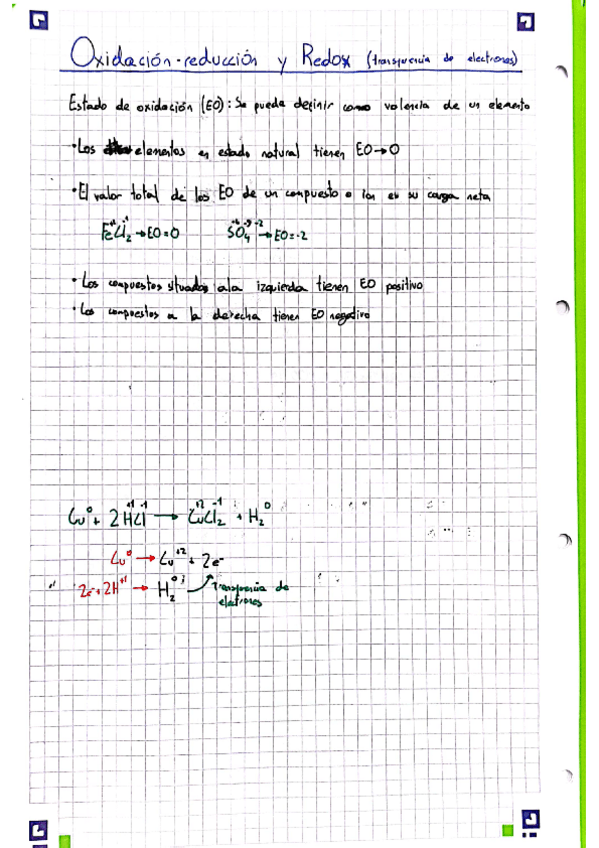 Oxidación-reducción y Redox (transferencia de electrones)
Estado de oxidación (EO): Se puede definir como valencia de un elemento
·Los elementos en estado natural tienen EO→0
·El valor total de los EO de un compuesto o ion es su carga neta
FeCl₂ → EO=0 SO₄ → EO=-2
·Los compuestos situados a la izquierda tienen EO positivo
·Los compuestos a la derecha tienen EO negativo
Cu⁰ + 2H⁺¹Cl⁻¹ → Cu⁺²Cl₂⁻¹ + H₂⁰
Cu⁰ → Cu⁺² + 2e⁻
2e⁻+2H⁺¹ → H₂⁰ Transferencia de
electrones